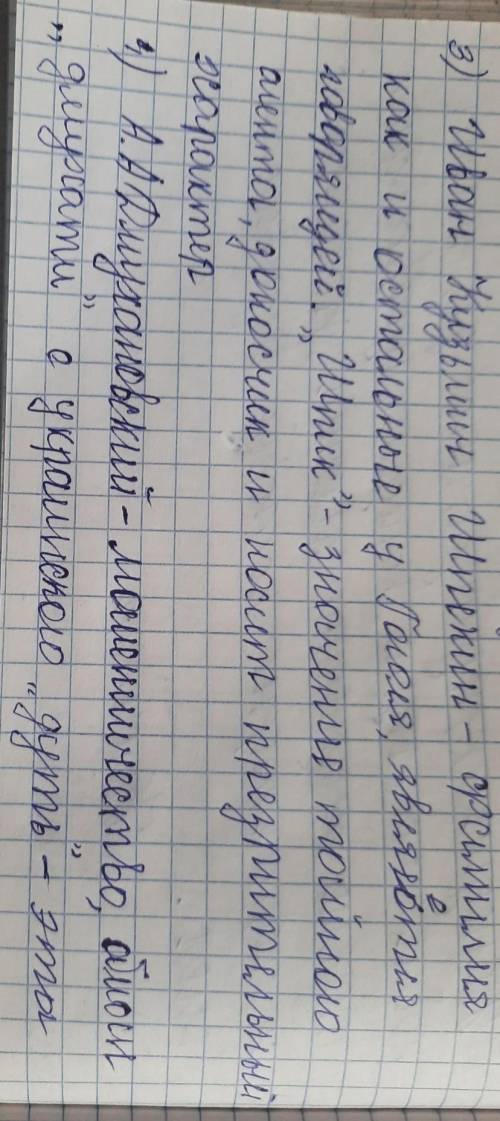 3) Иван Кузьмич Шпекин - фамилия
как и остальные у Гоголя, является
говорящей. „Шпик" - значение тайного
агента, доносчик и носит презрительный
характер
4) А.А Дмухановский - мошенничество, обман
„дмухати" с украинского „дуть" - эта